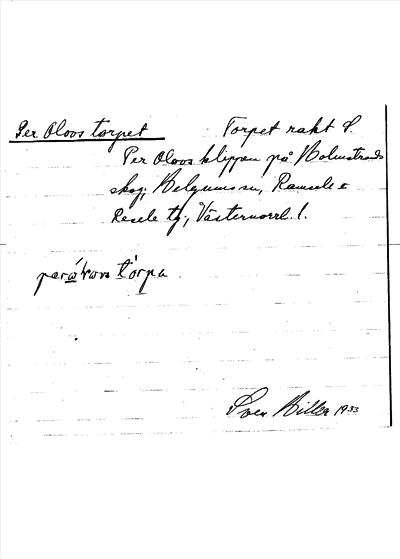 Per Olovs torpet
Torpet rakt S.
Per Olovs klippen på Holmstrands
skog, Helgums sn, Ramsele o
Resele tg, Västernorrl. l.
torpa
Sven Hiller 1933